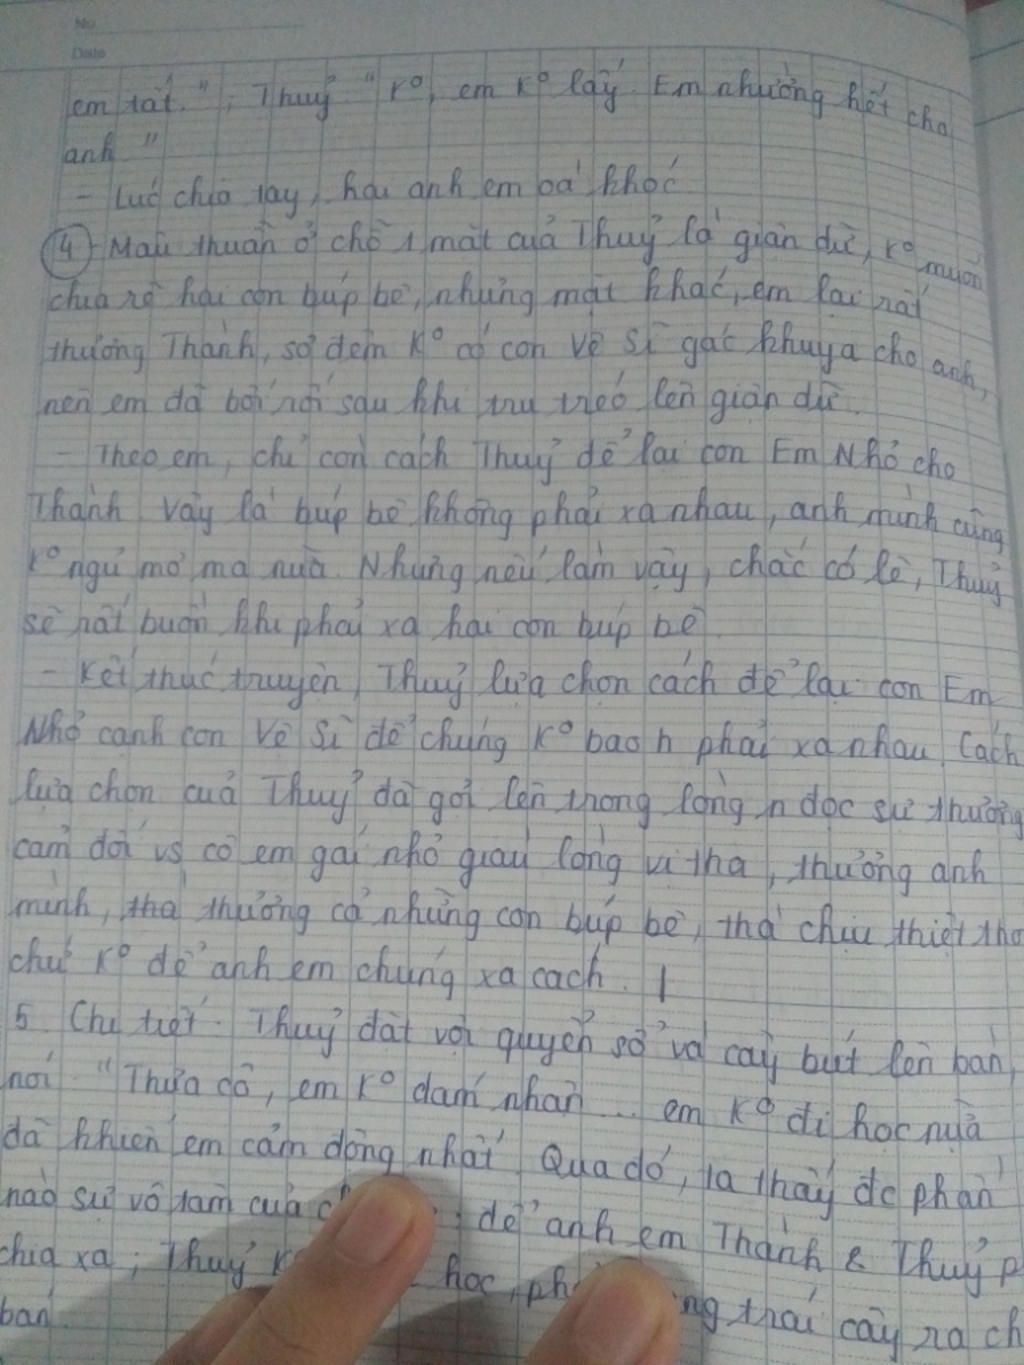 No
Date
em tất."; Thuỷ "K°, em K° lấy. Em nhường hết cho
anh"
- Lúc chia tay, hai anh em oà khóc
4 - Mâu thuẫn ở chỗ 1 mặt của Thuỷ là giận dữ, K° muốn
chia rẽ hai con búp bê, nhưng mặt khác, em lại rất
thương Thành, sợ đêm K° có con Vệ Sĩ gác khuya cho anh,
nên em đã bối rối sau khi tru tréo lên giận dữ.
- Theo em, chỉ còn cách Thuỷ để lại con Em Nhỏ cho
Thành. Vậy là búp bê không phải xa nhau, anh mình cũng
K° ngủ mơ ma nữa. Nhưng nếu làm vậy, chắc có lẽ, Thuỷ
sẽ rất buồn khi phải xa hai con búp bê
- Kết thúc truyện, Thuỷ lựa chọn cách để lại con Em
Nhỏ cạnh con Vệ Sĩ để chúng K° bao h phải xa nhau. Cách
lựa chọn của Thuỷ đã gợi lên trong lòng n đọc sự thương
cảm đối vs cô em gái nhỏ giàu lòng vị tha, thương anh
mình, thà thương cả những con búp bê, thà chịu thiệt thò
chứ K° để anh em chúng xa cách.
5. Chi tiết: Thuỷ đặt vội quyển sổ và cây bút lên bàn,
nói "Thưa cô, em K° dám nhận... em K° đi học nữa
đã khiến em cảm động nhất. Qua đó, ta thấy đc phần
nào sự vô tâm của để anh em Thành & Thuỷ
chia xa; Thuỷ học, trái cây ra
bán.